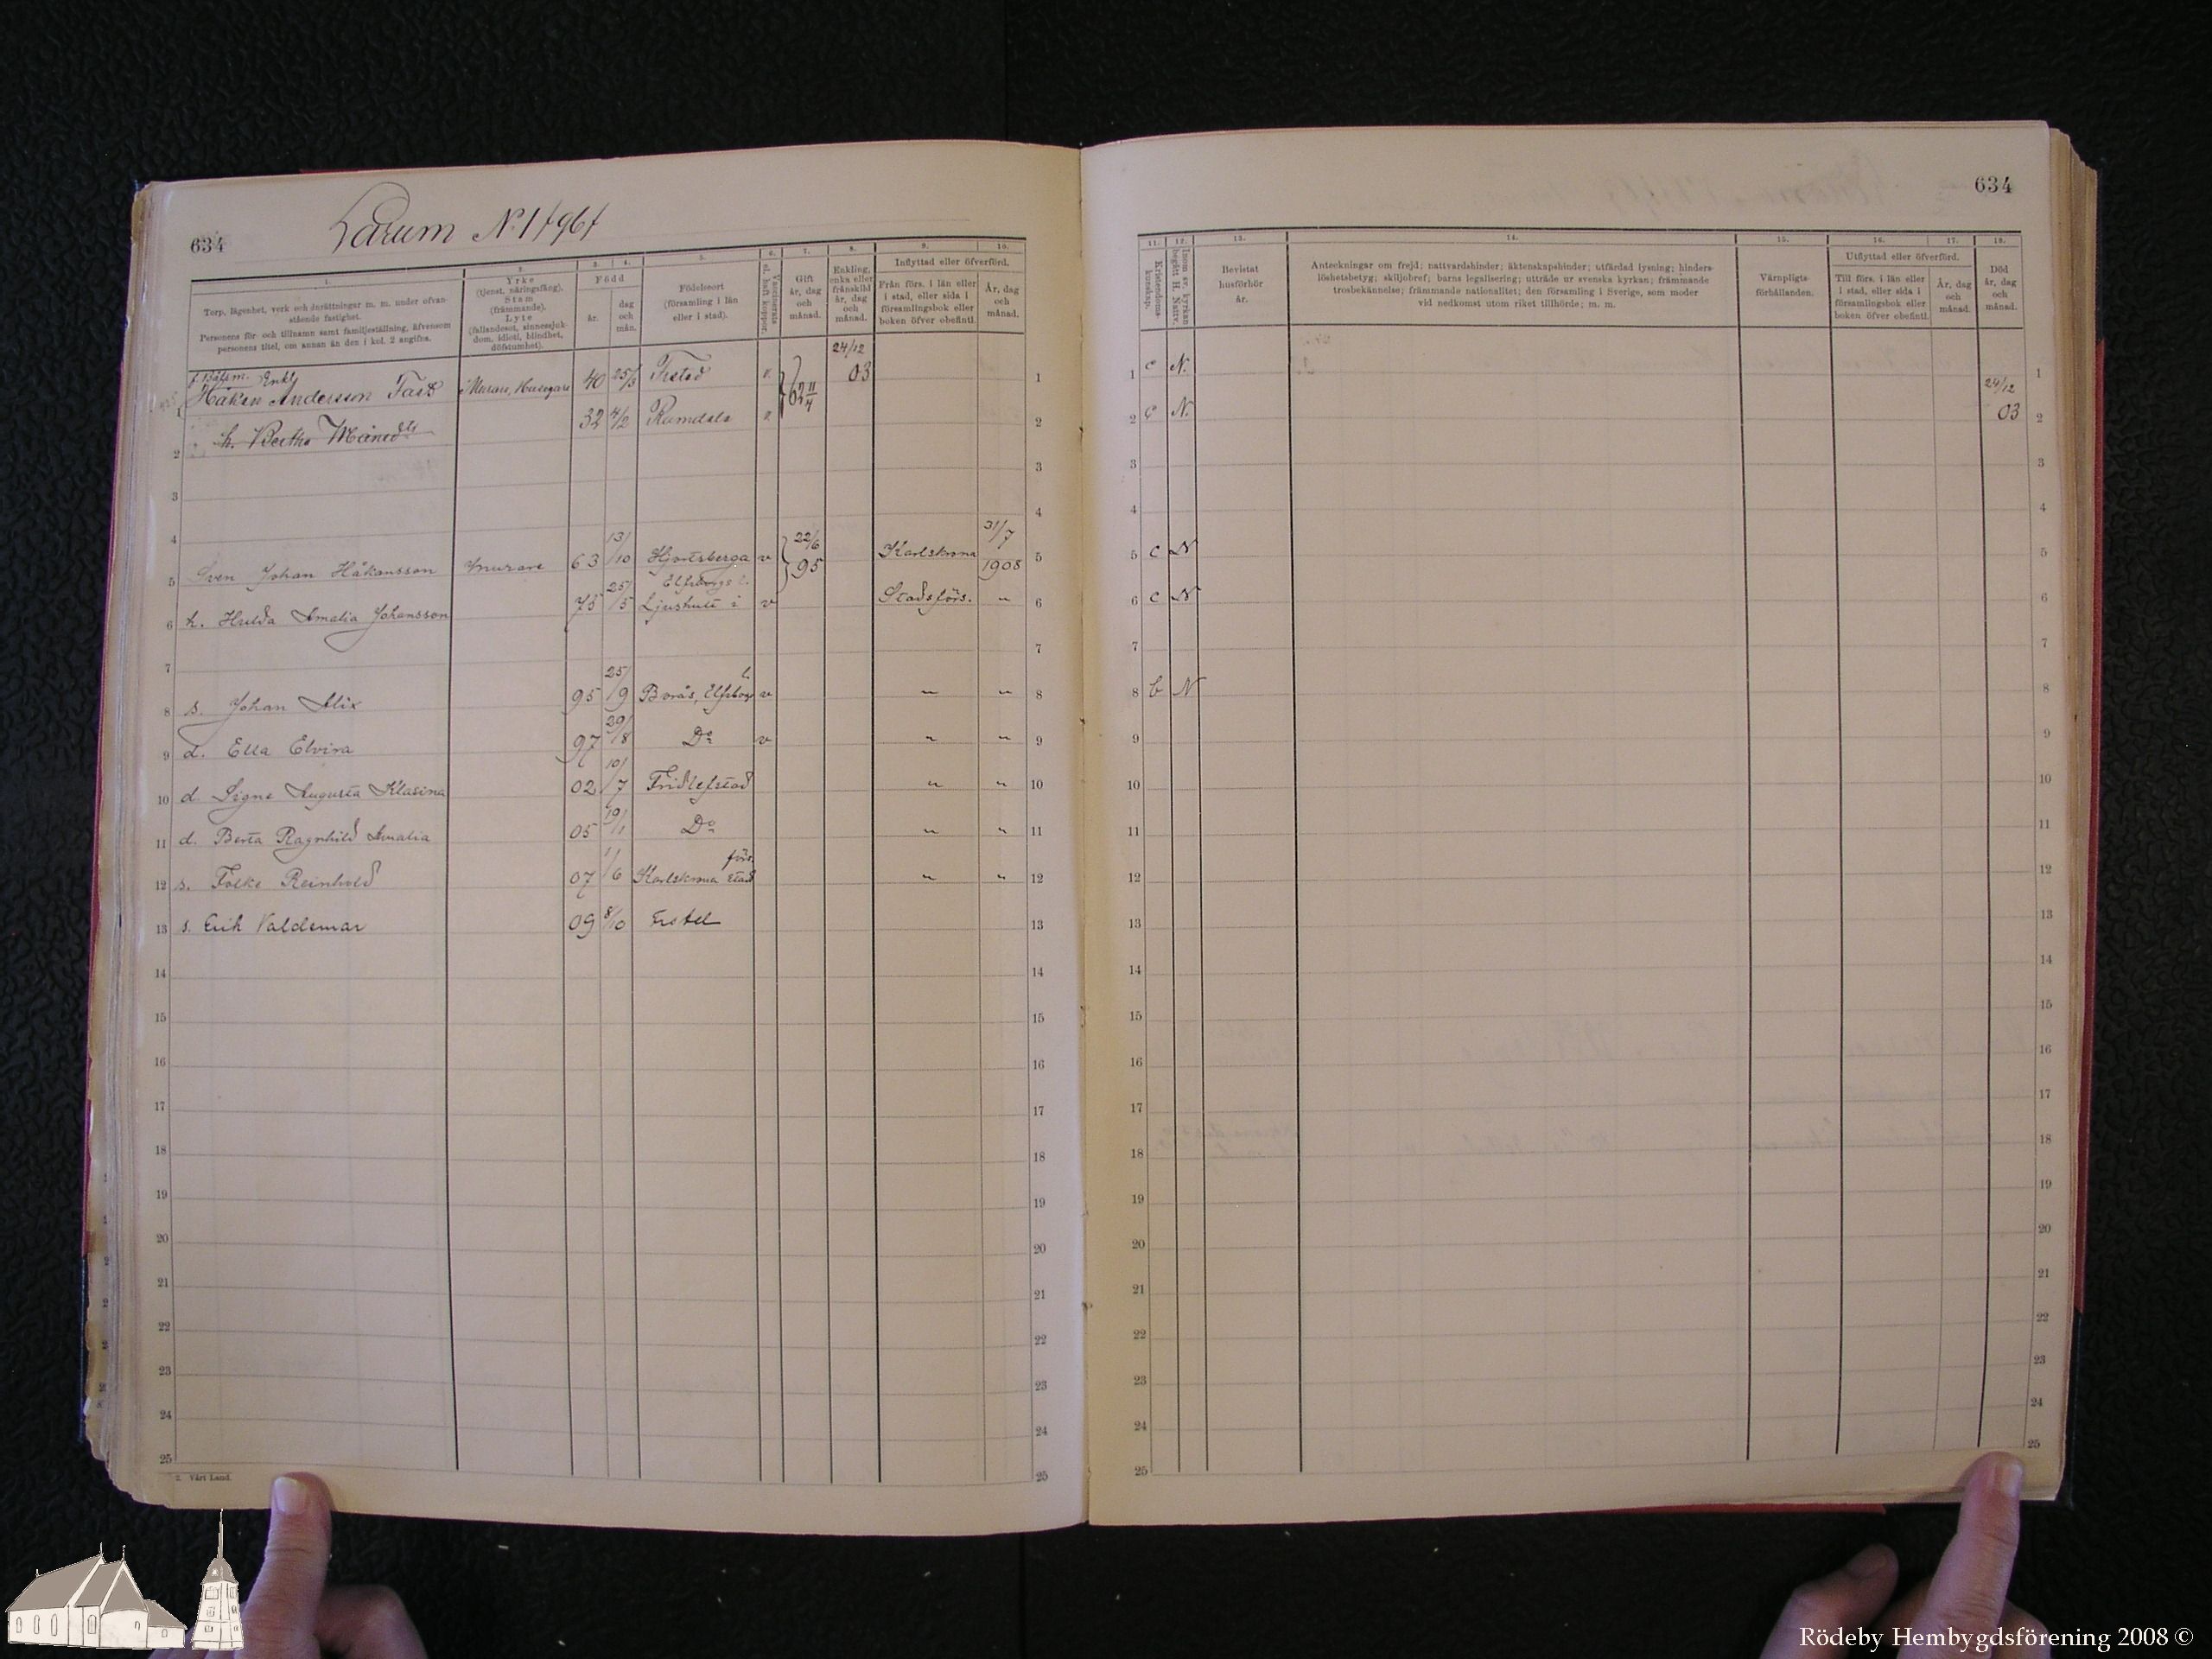 634
Larum No 1 f 96 f
1. 2. 3. 4. 5. 6. 7. 8. 9. 10.
Torp, lägenhet, verk och inrättningar m. m. under ofvanstående fastighet.
Personens för- och tillnamn samt familjeställning, äfvensom personens titel, om annan än den i kol. 2 angifna.
Yrke (tjenst, näringsfång). Stam (främmande). Lyte (fallandesot, sinnessjukdom, idioti, blindhet, döfstumhet).
Född
år.
dag och mån.
Födelseort (församling i län eller i stad).
Vaccinerats el. haft koppor.
Gift år, dag och månad.
Enkling, enka eller frånskild år, dag och månad.
Inflyttad eller öfverförd.
Från förs. i län eller i stad, eller sida i församlingsbok eller boken öfver obefintl.
År, dag och månad.
Enkl.
1 Håkan Andersson Fast Murare, 40 25/3 v. 62 24/12 03 1
2 h. Bertha Månsdtr 32 4/2 Ramdala v 2
3 3
4 4
5 Sven Johan Håkansson Murare 63 13/10 Hjortsberga v 22/6 95 Karlskrona 31/7 1908 5
6 h. Hulda Amalia Johansson 75 25/5 Ljushult i Elfsborgs l. v Stadsförs. " 6
7 7
8 s. Johan Alix 95 25/9 Borås, Elfsborgs l. v " " 8
9 d. Ella Elvira 97 29/8 Do v " " 9
10 d. Signe Augusta Klasina 02 10/7 Fridlefstad " " 10
11 d. Berta Ragnhild Amalia 05 19/1 Do " " 11
12 s. Folke Reinhold 07 1/6 Karlskrona stads förs. " " 12
13 s. Erik Valdemar 09 8/10 13
14 14
15 15
16 16
17 17
18 18
19 19
20 20
21 21
22 22
23 23
24 24
25 25
2. Vårt Land.
634
11. 12. 13. 14. 15. 16. 17. 18.
Kristendomskunskap.
Inom sv. kyrkan begått H. Nattv.
Bevistat husförhör år.
Anteckningar om frejd; nattvardshinder; äktenskapshinder; utfärdad lysning; hinderslöshetsbetyg; skiljobref; barns legalisering; utträde ur svenska kyrkan; främmande trosbekännelse; främmande nationalitet; den församling i Sverige, som moder vid nedkomst utom riket tillhörde; m. m.
Värnpligtsförhållanden.
Utflyttad eller öfverförd.
Till förs. i län eller i stad, eller sida i församlingsbok eller boken öfver obefintl.
År, dag och månad.
Död år, dag och månad.
1 c N. 1
2 c N. 24/12 03 2
3 3
4 4
5 c N 5
6 c N 6
7 7
8 b N 8
9 9
10 10
11 11
12 12
13 13
14 14
15 15
16 16
17 17
18 18
19 19
20 20
21 21
22 22
23 23
24 24
25 25
Rödeby Hembygdsförening 2008 ©